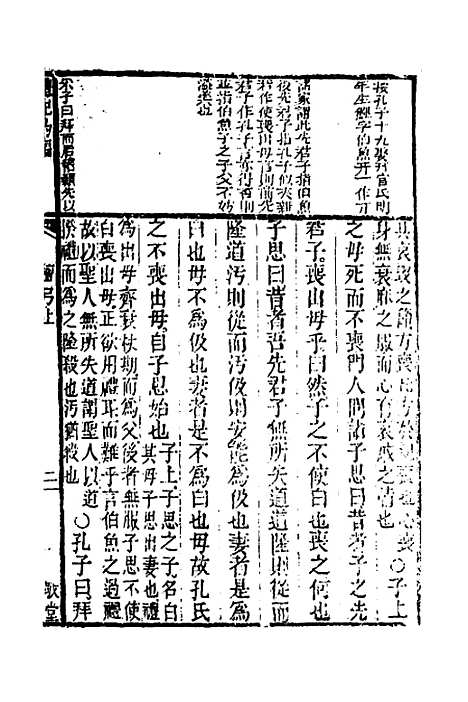 按孔子十九娶幵官氏明
年生鯉字伯魚幵一作
諸家謂此先君子指伯魚
後先君子指孔子似未
若作使喪出母
君子作孔子
並指伯魚子之子又不妨
身無衰麻之服而心有哀戚之情也　〇子上
之母死而不喪門人問諸子思曰昔者子之先
君子喪出母乎曰然子之不使白也喪之何也
子思曰昔者吾先君子無所失道道隆則從而
隆道汚則從而汚伋則安能爲伋也妻者是爲
白也母不爲伋也妻者是不爲白也母故孔氏
之不喪出母自子思始也　子上子思之子名白其母子思出妻也禮
爲出母齊衰杖期而爲父後者無服子思不使
白喪出母正欲用禮耳而難乎言伯魚之過禮
故以聖人無所失道謂聖人以道
揆禮而爲之隆殺也汚猶殺也　〇孔子曰拜
朱子曰拜而后稽顙先以
檀弓上
敬堂